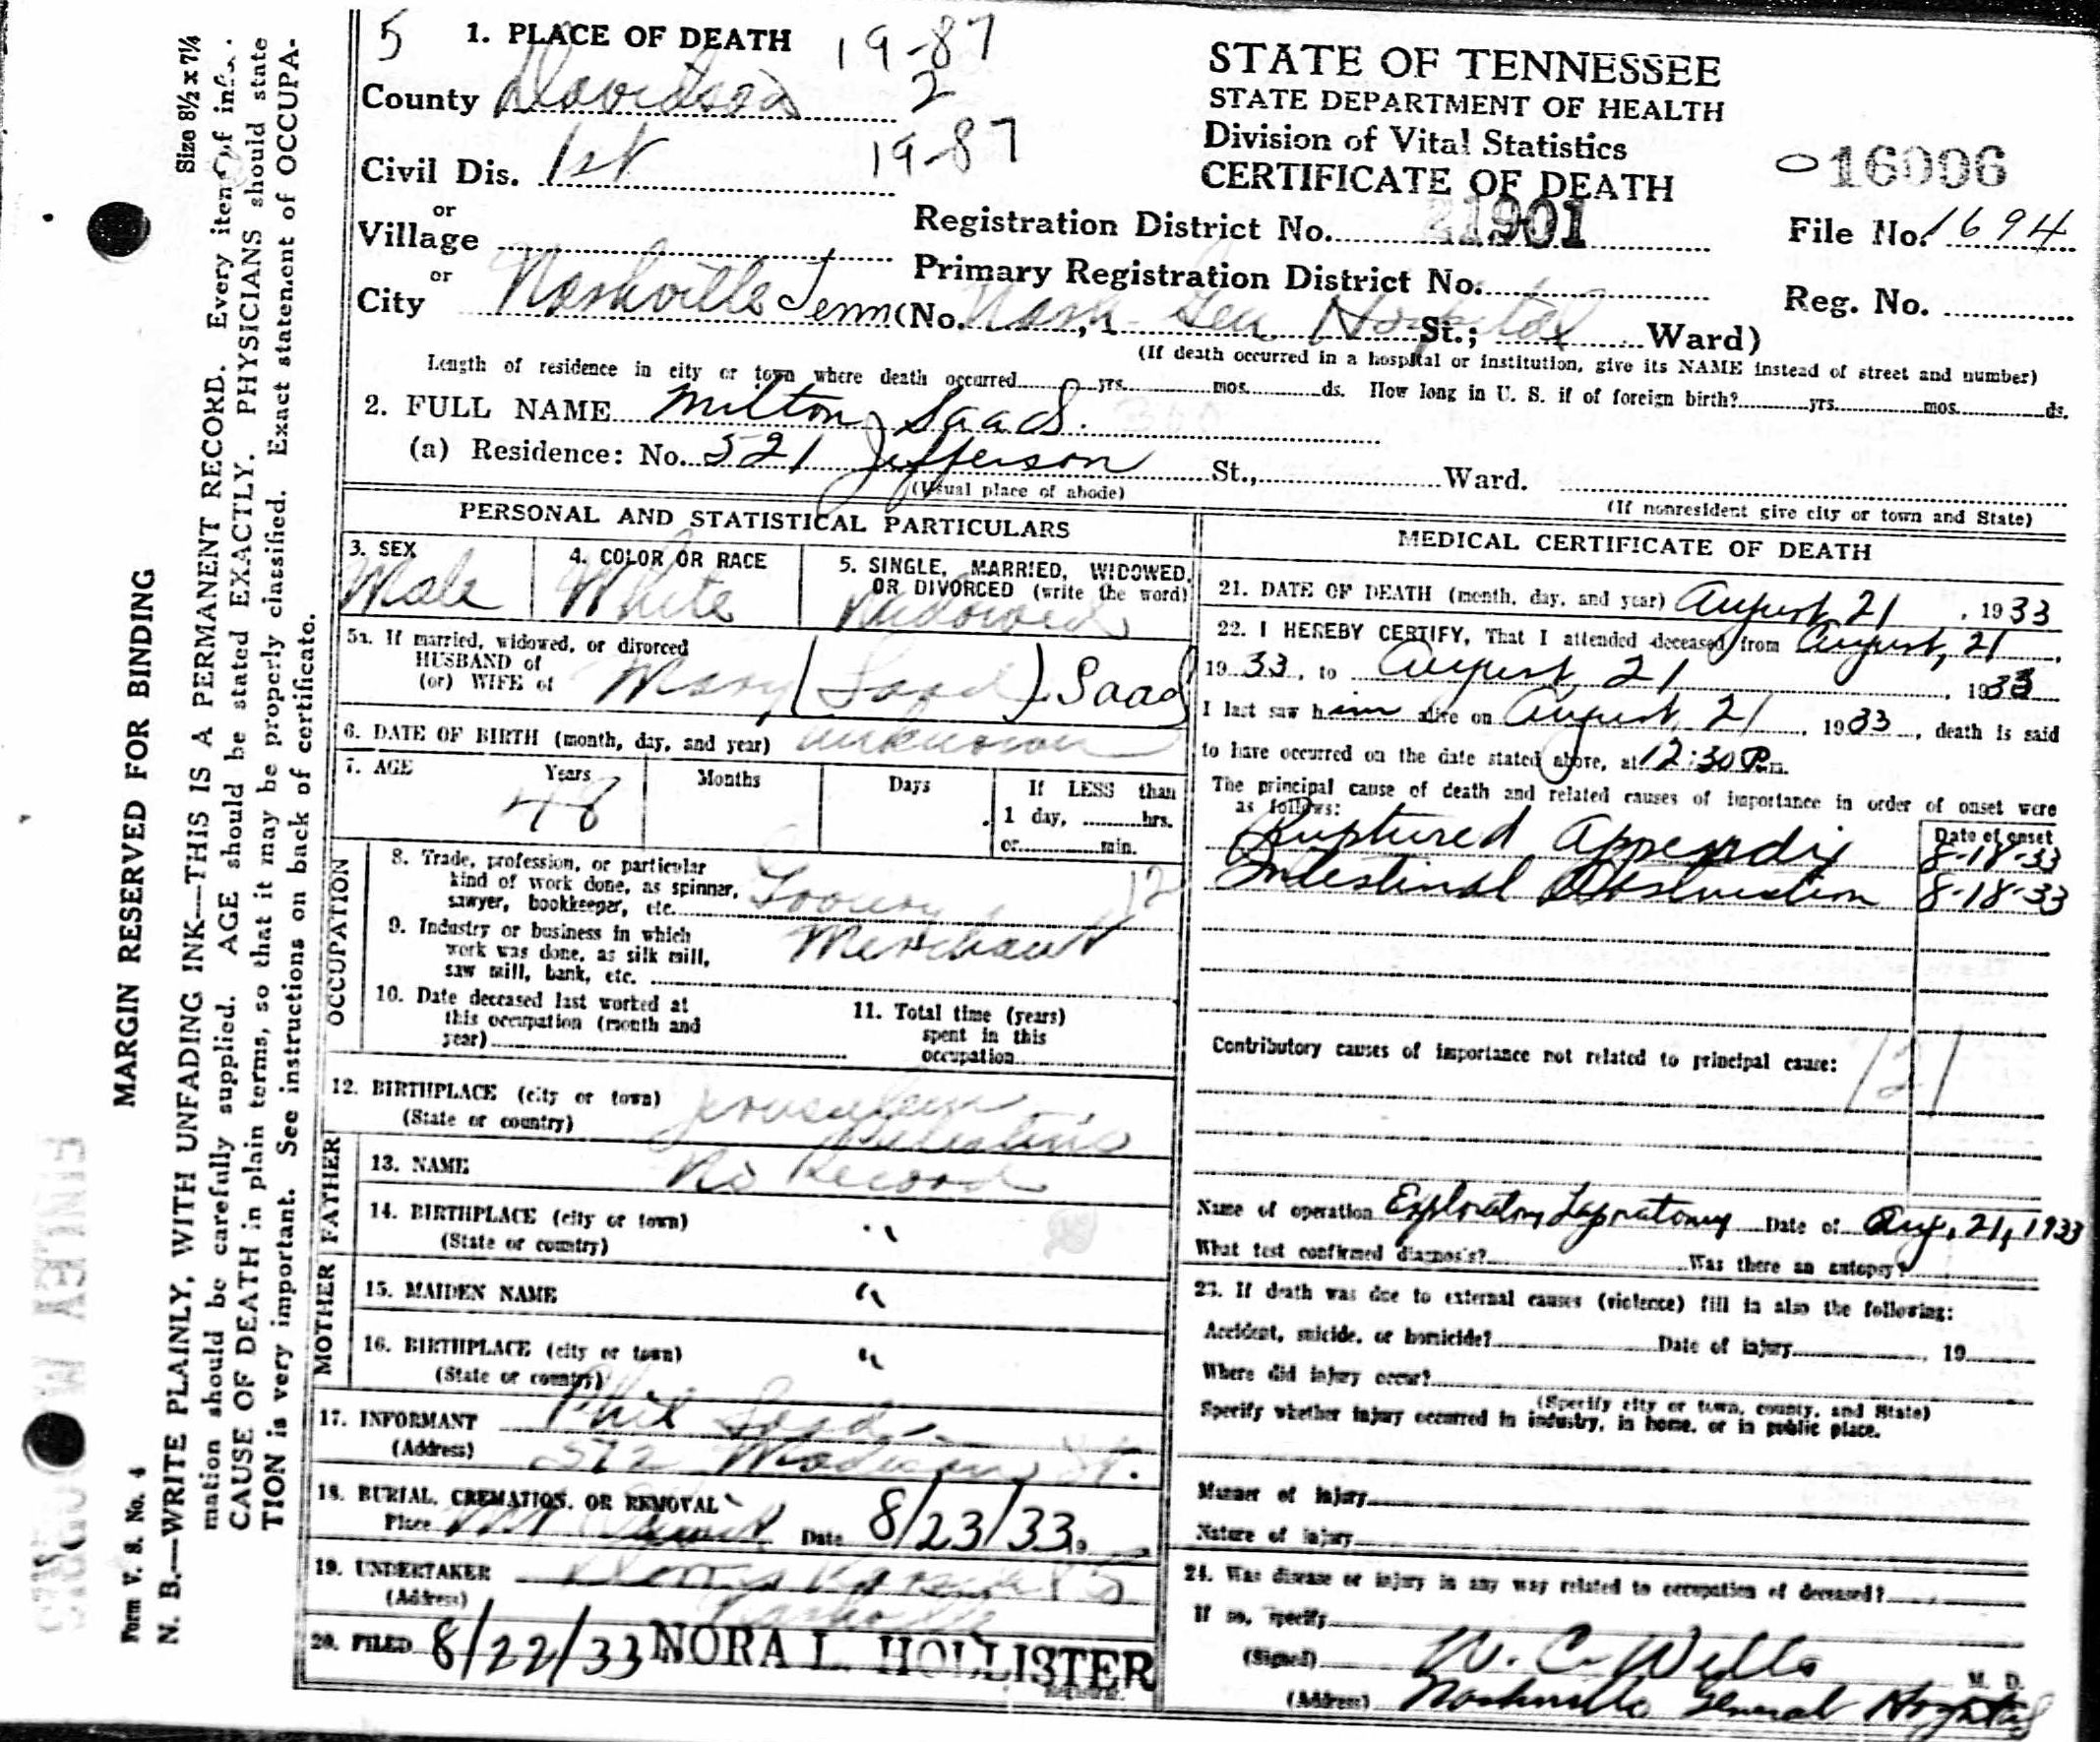 Size 8½ x 7¼
MARGIN RESERVED FOR BINDING
N. B.—WRITE PLAINLY, WITH UNFADING INK—THIS IS A PERMANENT RECORD. Every item of
mation should be carefully supplied. AGE should be stated EXACTLY. PHYSICIANS should state
CAUSE OF DEATH in plain terms, so that it may be properly classified. Exact statement of OCCUPA-
TION is very important. See instructions on back of certificate.
Form V. S. No. 4
5 1. PLACE OF DEATH 19-87
County Davidson 2
Civil Dis. 1st 19-87
or
Village
or
City Nashville Tenn (No. Nash. Gen Hospital St.; Ward)
STATE OF TENNESSEE
STATE DEPARTMENT OF HEALTH
Division of Vital Statistics
CERTIFICATE OF DEATH
16006
Registration District No. 21901
File No. 1694
Primary Registration District No.
Reg. No.
(If death occurred in a hospital or institution, give its NAME instead of street and number)
Length of residence in city or town where death occurred yrs. mos. ds. How long in U. S. if of foreign birth? yrs. mos. ds.
2. FULL NAME Milton Saad.
(a) Residence: No. 521 Jefferson St., Ward.
(Usual place of abode) (If nonresident give city or town and State)
PERSONAL AND STATISTICAL PARTICULARS
3. SEX
Male
4. COLOR OR RACE
White
5. SINGLE, MARRIED, WIDOWED,
OR DIVORCED (write the word)
Widowed
5a. If married, widowed, or divorced
HUSBAND of
(or) WIFE of Mary (Saad) Saad
6. DATE OF BIRTH (month, day, and year) unknown
7. AGE Years Months Days If LESS than
48 1 day, hrs.
or min.
OCCUPATION
8. Trade, profession, or particular
kind of work done, as spinner,
sawyer, bookkeeper, etc. Grocery 12
9. Industry or business in which
work was done, as silk mill,
saw mill, bank, etc. Merchant
10. Date deceased last worked at
this occupation (month and
year)
11. Total time (years)
spent in this
occupation
12. BIRTHPLACE (city or town) Jerusalem
(State or country) Palestine
FATHER
13. NAME No Record
14. BIRTHPLACE (city or town) "
(State or country)
MOTHER
15. MAIDEN NAME "
16. BIRTHPLACE (city or town) "
(State or country)
17. INFORMANT Phil Saad
(Address) 572 Madison St.
18. BURIAL, CREMATION, OR REMOVAL
Place Date 8/23/33 19
19. UNDERTAKER
(Address) Nashville
20. FILED 8/22/33 NORA L. HOLLISTER
Registrar.
MEDICAL CERTIFICATE OF DEATH
21. DATE OF DEATH (month, day, and year) August 21, 1933
22. I HEREBY CERTIFY, That I attended deceased from August, 21,
1933, to August, 21, 1933
I last saw him alive on August, 21, 1933, death is said
to have occurred on the date stated above, at 12:30 P.m.
The principal cause of death and related causes of importance in order of onset were
as follows:
Date of onset
Ruptured Appendix 8-18-33
Intestinal Obstruction 8-18-33
Contributory causes of importance not related to principal cause: 121
Name of operation Exploratory Lapratomy Date of Aug, 21, 1933
What test confirmed diagnosis? Was there an autopsy?
23. If death was due to external causes (violence) fill in also the following:
Accident, suicide, or homicide? Date of injury , 19
Where did injury occur?
(Specify city or town, county, and State)
Specify whether injury occurred in industry, in home, or in public place.
Manner of injury
Nature of injury
24. Was disease or injury in any way related to occupation of deceased?
If so, specify
(Signed) W. C. Wells M. D.
(Address) Nashville General Hospital